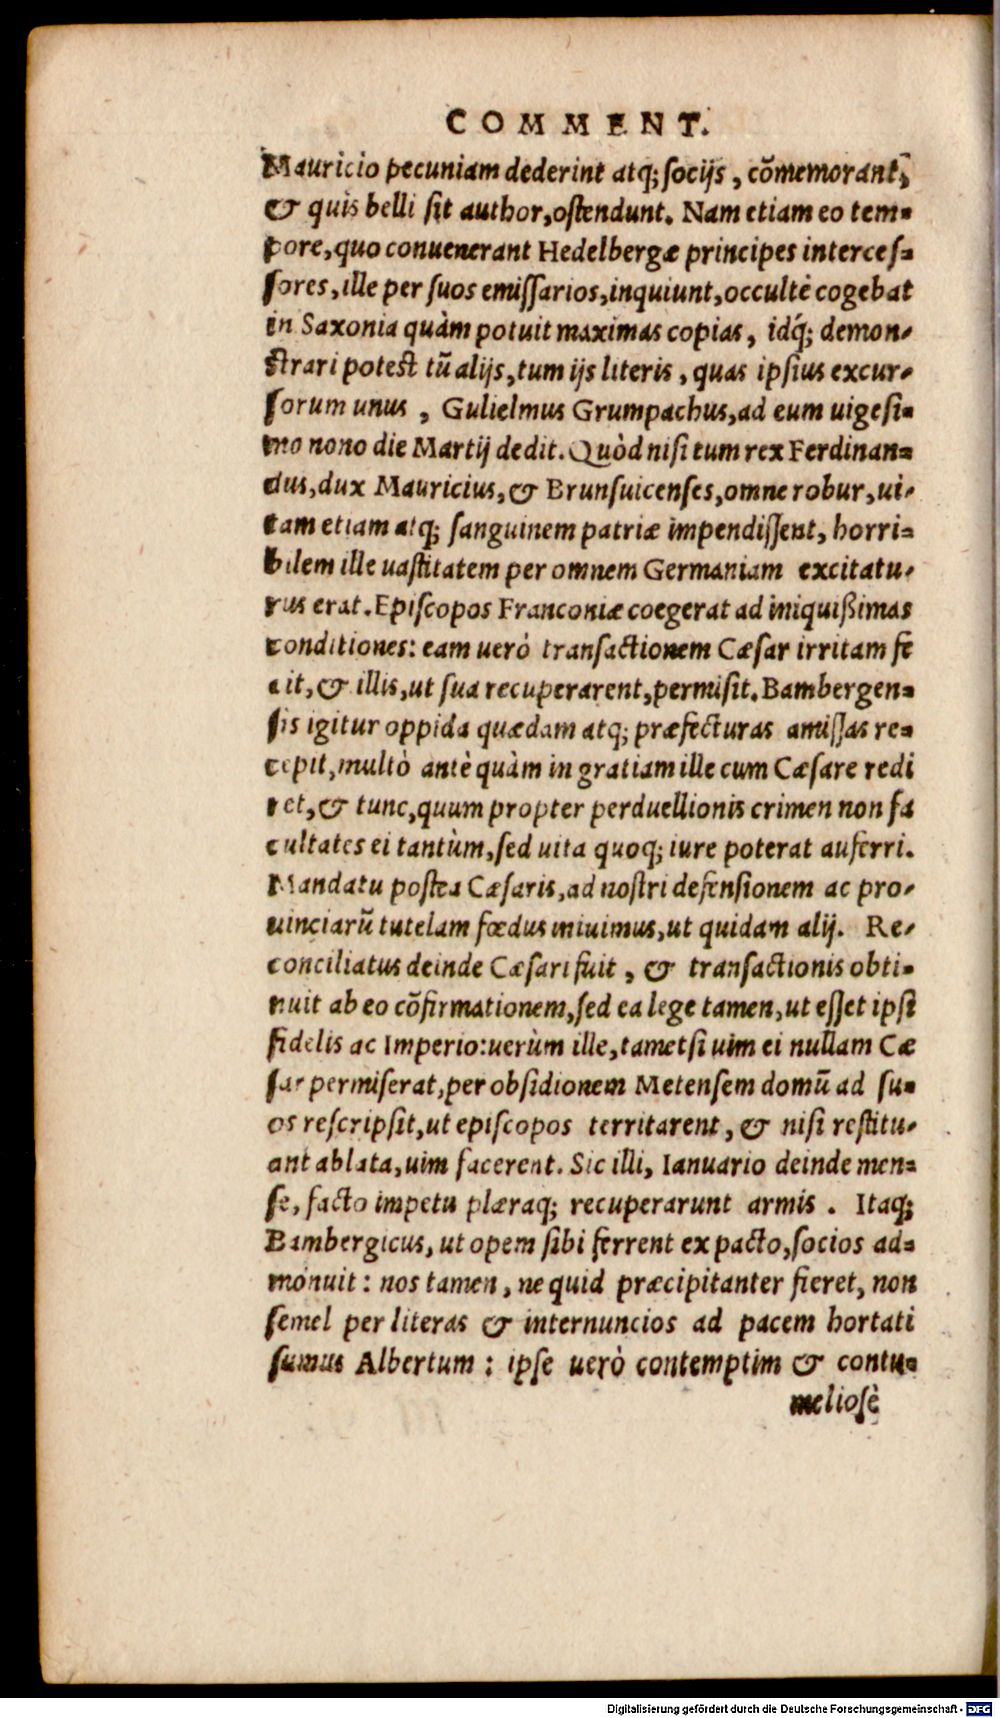 COMMENT.
Mauricio pecuniam dederint atq; socijs, cōmemorant,
& quis belli sit author, ostendunt. Nam etiam eo tem-
pore, quo conuenerant Hedelbergæ principes interces-
sores, ille per suos emissarios, inquiunt, occultè cogebat
in Saxonia quàm potuit maximas copias, idq́; demon-
strari potest tū alijs, tum ijs literis, quas ipsius excur-
sorum unus, Gulielmus Grumpachus, ad eum uigesi-
mo nono die Martij dedit. Quòd nisi tum rex Ferdinan-
dus, dux Mauricius, & Brunsuicenses, omne robur, ui-
tam etiam atq; sanguinem patriæ impendissent, horri-
bilem ille uastitatem per omnem Germaniam excitatu-
rus erat. Episcopos Franconiæ coegerat ad iniquißimas
conditiones: eam uerò transactionem Cæsar irritam fe
cit, & illis, ut sua recuperarent, permisit. Bambergen-
sis igitur oppida quædam atq; præfecturas amissas re-
cepit, multò antè quàm in gratiam ille cum Cæsare redi
ret, & tunc, quum propter perduellionis crimen non fa
cultates ei tantùm, sed uita quoq; iure poterat auferri.
Mandatu postea Cæsaris, ad nostri defensionem ac pro-
uinciarū tutelam fœdus iniuimus, ut quidam alij. Re-
conciliatus deinde Cæsari fuit, & transactionis obti-
nuit ab eo cōfirmationem, sed ea lege tamen, ut esset ipsi
fidelis ac Imperio: uerùm ille, tametsi uim ei nullam Cæ
sar permiserat, per obsidionem Metensem domū ad su-
os rescripsit, ut episcopos territarent, & nisi restitu-
ant ablata, uim facerent. Sic illi, Ianuario deinde men-
se, facto impetu plæraq; recuperarunt armis. Itaq;
Bambergicus, ut opem sibi ferrent ex pacto, socios ad-
monuit: nos tamen, ne quid præcipitanter fieret, non
semel per literas & internuncios ad pacem hortati
sumus Albertum: ipse uerò contemptim & contu-
meliosè
Digitalisierung gefördert durch die Deutsche Forschungsgemeinschaft - DFG